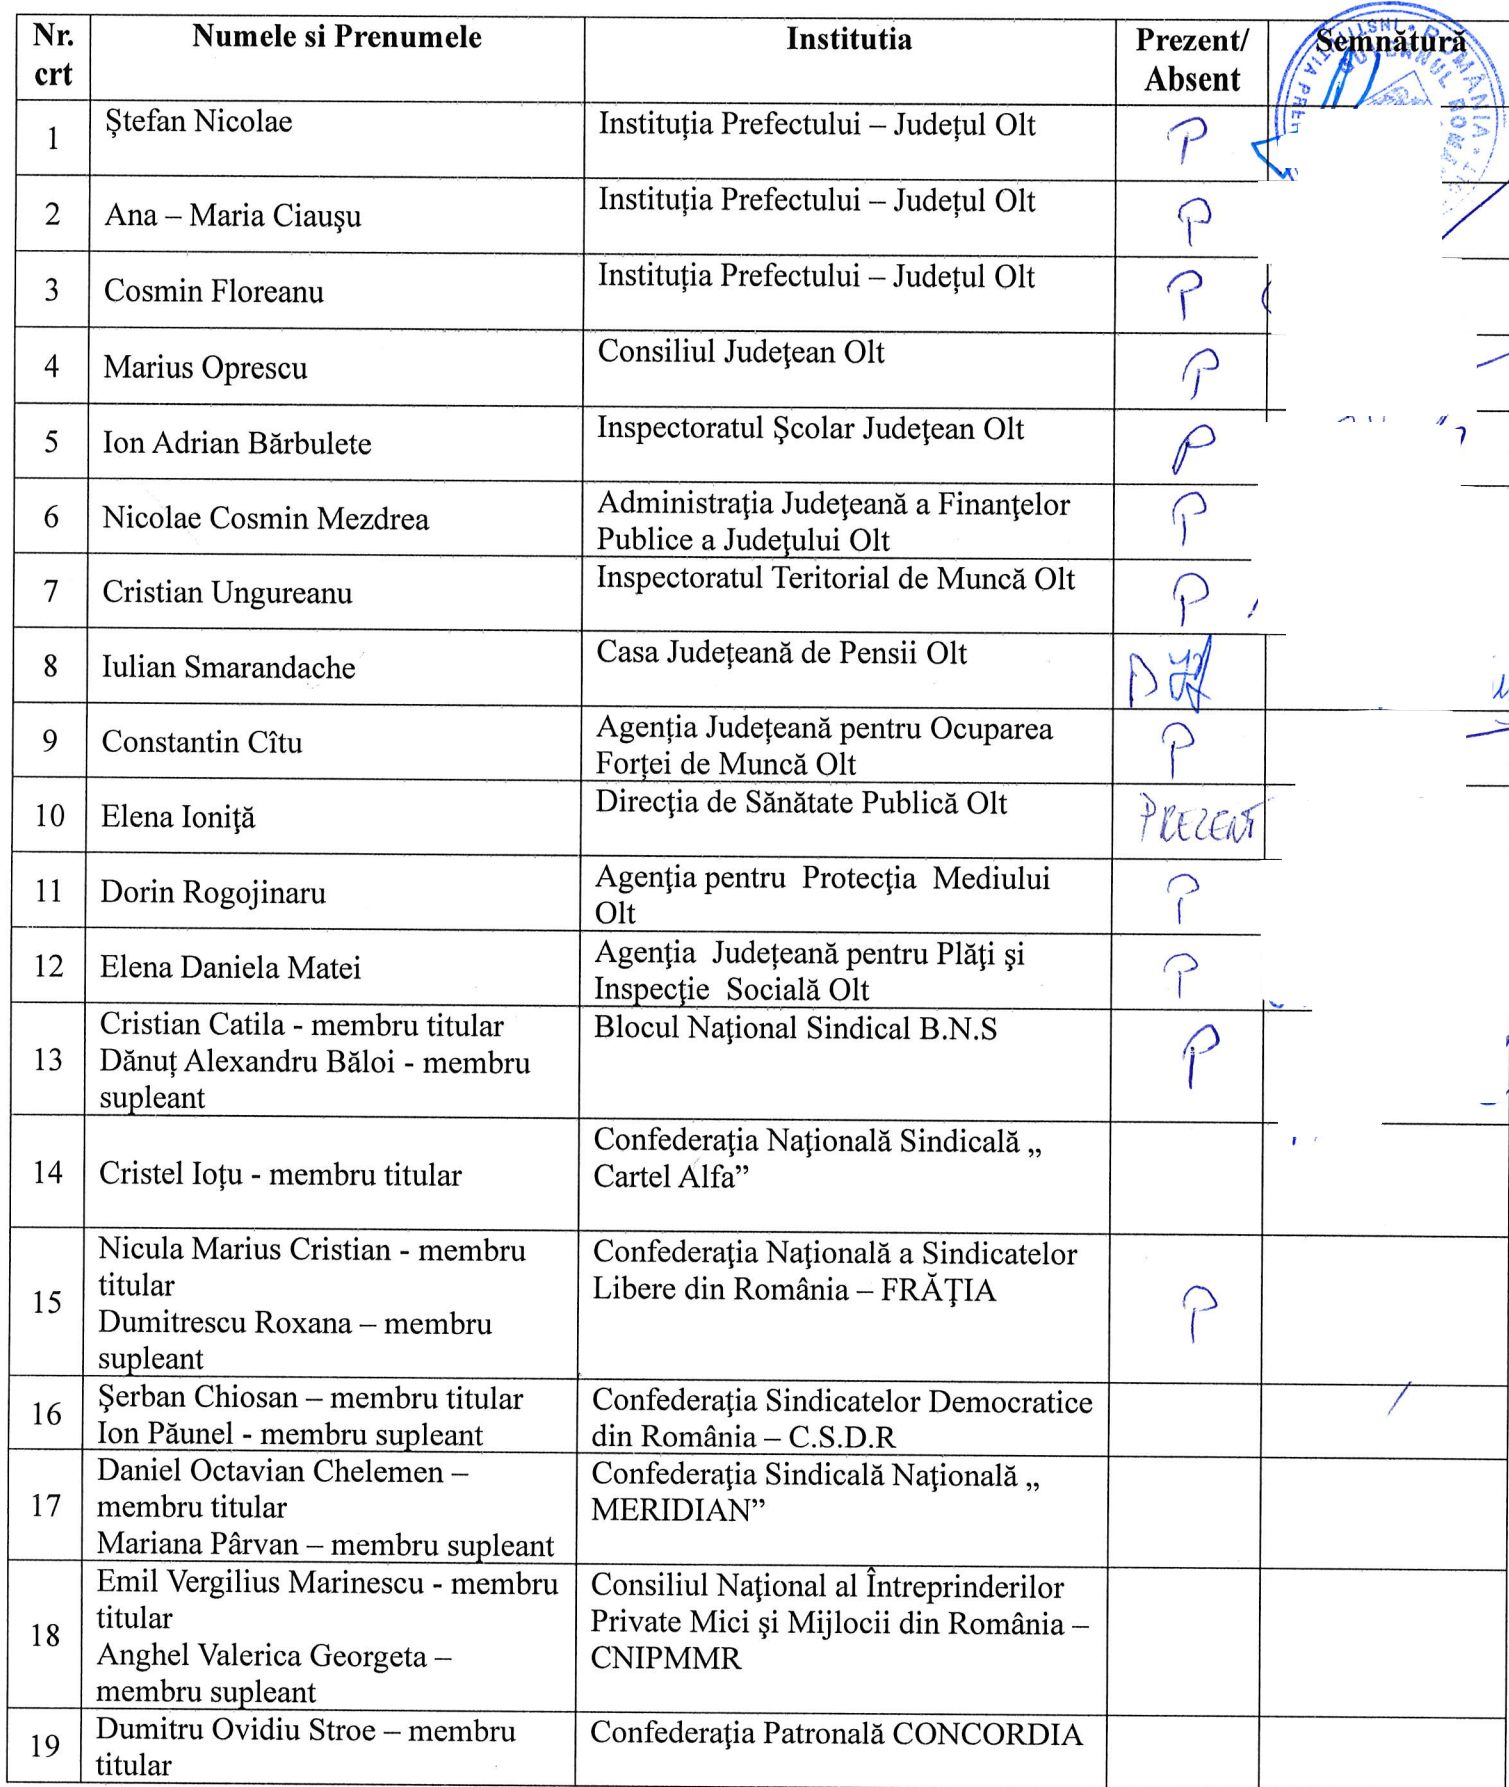 Nr. crt Numele si Prenumele Institutia Prezent/ Absent Semnătură
1 Ștefan Nicolae Instituția Prefectului – Județul Olt P
2 Ana – Maria Ciaușu Instituția Prefectului – Județul Olt P
3 Cosmin Floreanu Instituția Prefectului – Județul Olt P
4 Marius Oprescu Consiliul Judeţean Olt P
5 Ion Adrian Bărbulete Inspectoratul Şcolar Judeţean Olt P
6 Nicolae Cosmin Mezdrea Administraţia Judeţeană a Finanţelor
Publice a Judeţului Olt P
7 Cristian Ungureanu Inspectoratul Teritorial de Muncă Olt P
8 Iulian Smarandache Casa Județeană de Pensii Olt
9 Constantin Cîtu Agenția Județeană pentru Ocuparea
Forței de Muncă Olt P
10 Elena Ioniţă Direcţia de Sănătate Publică Olt PREZENT
11 Dorin Rogojinaru Agenţia pentru Protecţia Mediului
Olt P
12 Elena Daniela Matei Agenţia Județeană pentru Plăţi şi
Inspecţie Socială Olt P
13 Cristian Catila - membru titular
Dănuț Alexandru Băloi - membru
supleant Blocul Naţional Sindical B.N.S P
14 Cristel Ioțu - membru titular Confederaţia Naţională Sindicală „
Cartel Alfa”
15 Nicula Marius Cristian - membru
titular
Dumitrescu Roxana – membru
supleant Confederaţia Naţională a Sindicatelor
Libere din România – FRĂŢIA P
16 Şerban Chiosan – membru titular
Ion Păunel - membru supleant Confederaţia Sindicatelor Democratice
din România – C.S.D.R
17 Daniel Octavian Chelemen –
membru titular
Mariana Pârvan – membru supleant Confederaţia Sindicală Naţională „
MERIDIAN”
18 Emil Vergilius Marinescu - membru
titular
Anghel Valerica Georgeta –
membru supleant Consiliul Naţional al Întreprinderilor
Private Mici şi Mijlocii din România –
CNIPMMR
19 Dumitru Ovidiu Stroe – membru
titular Confederaţia Patronală CONCORDIA